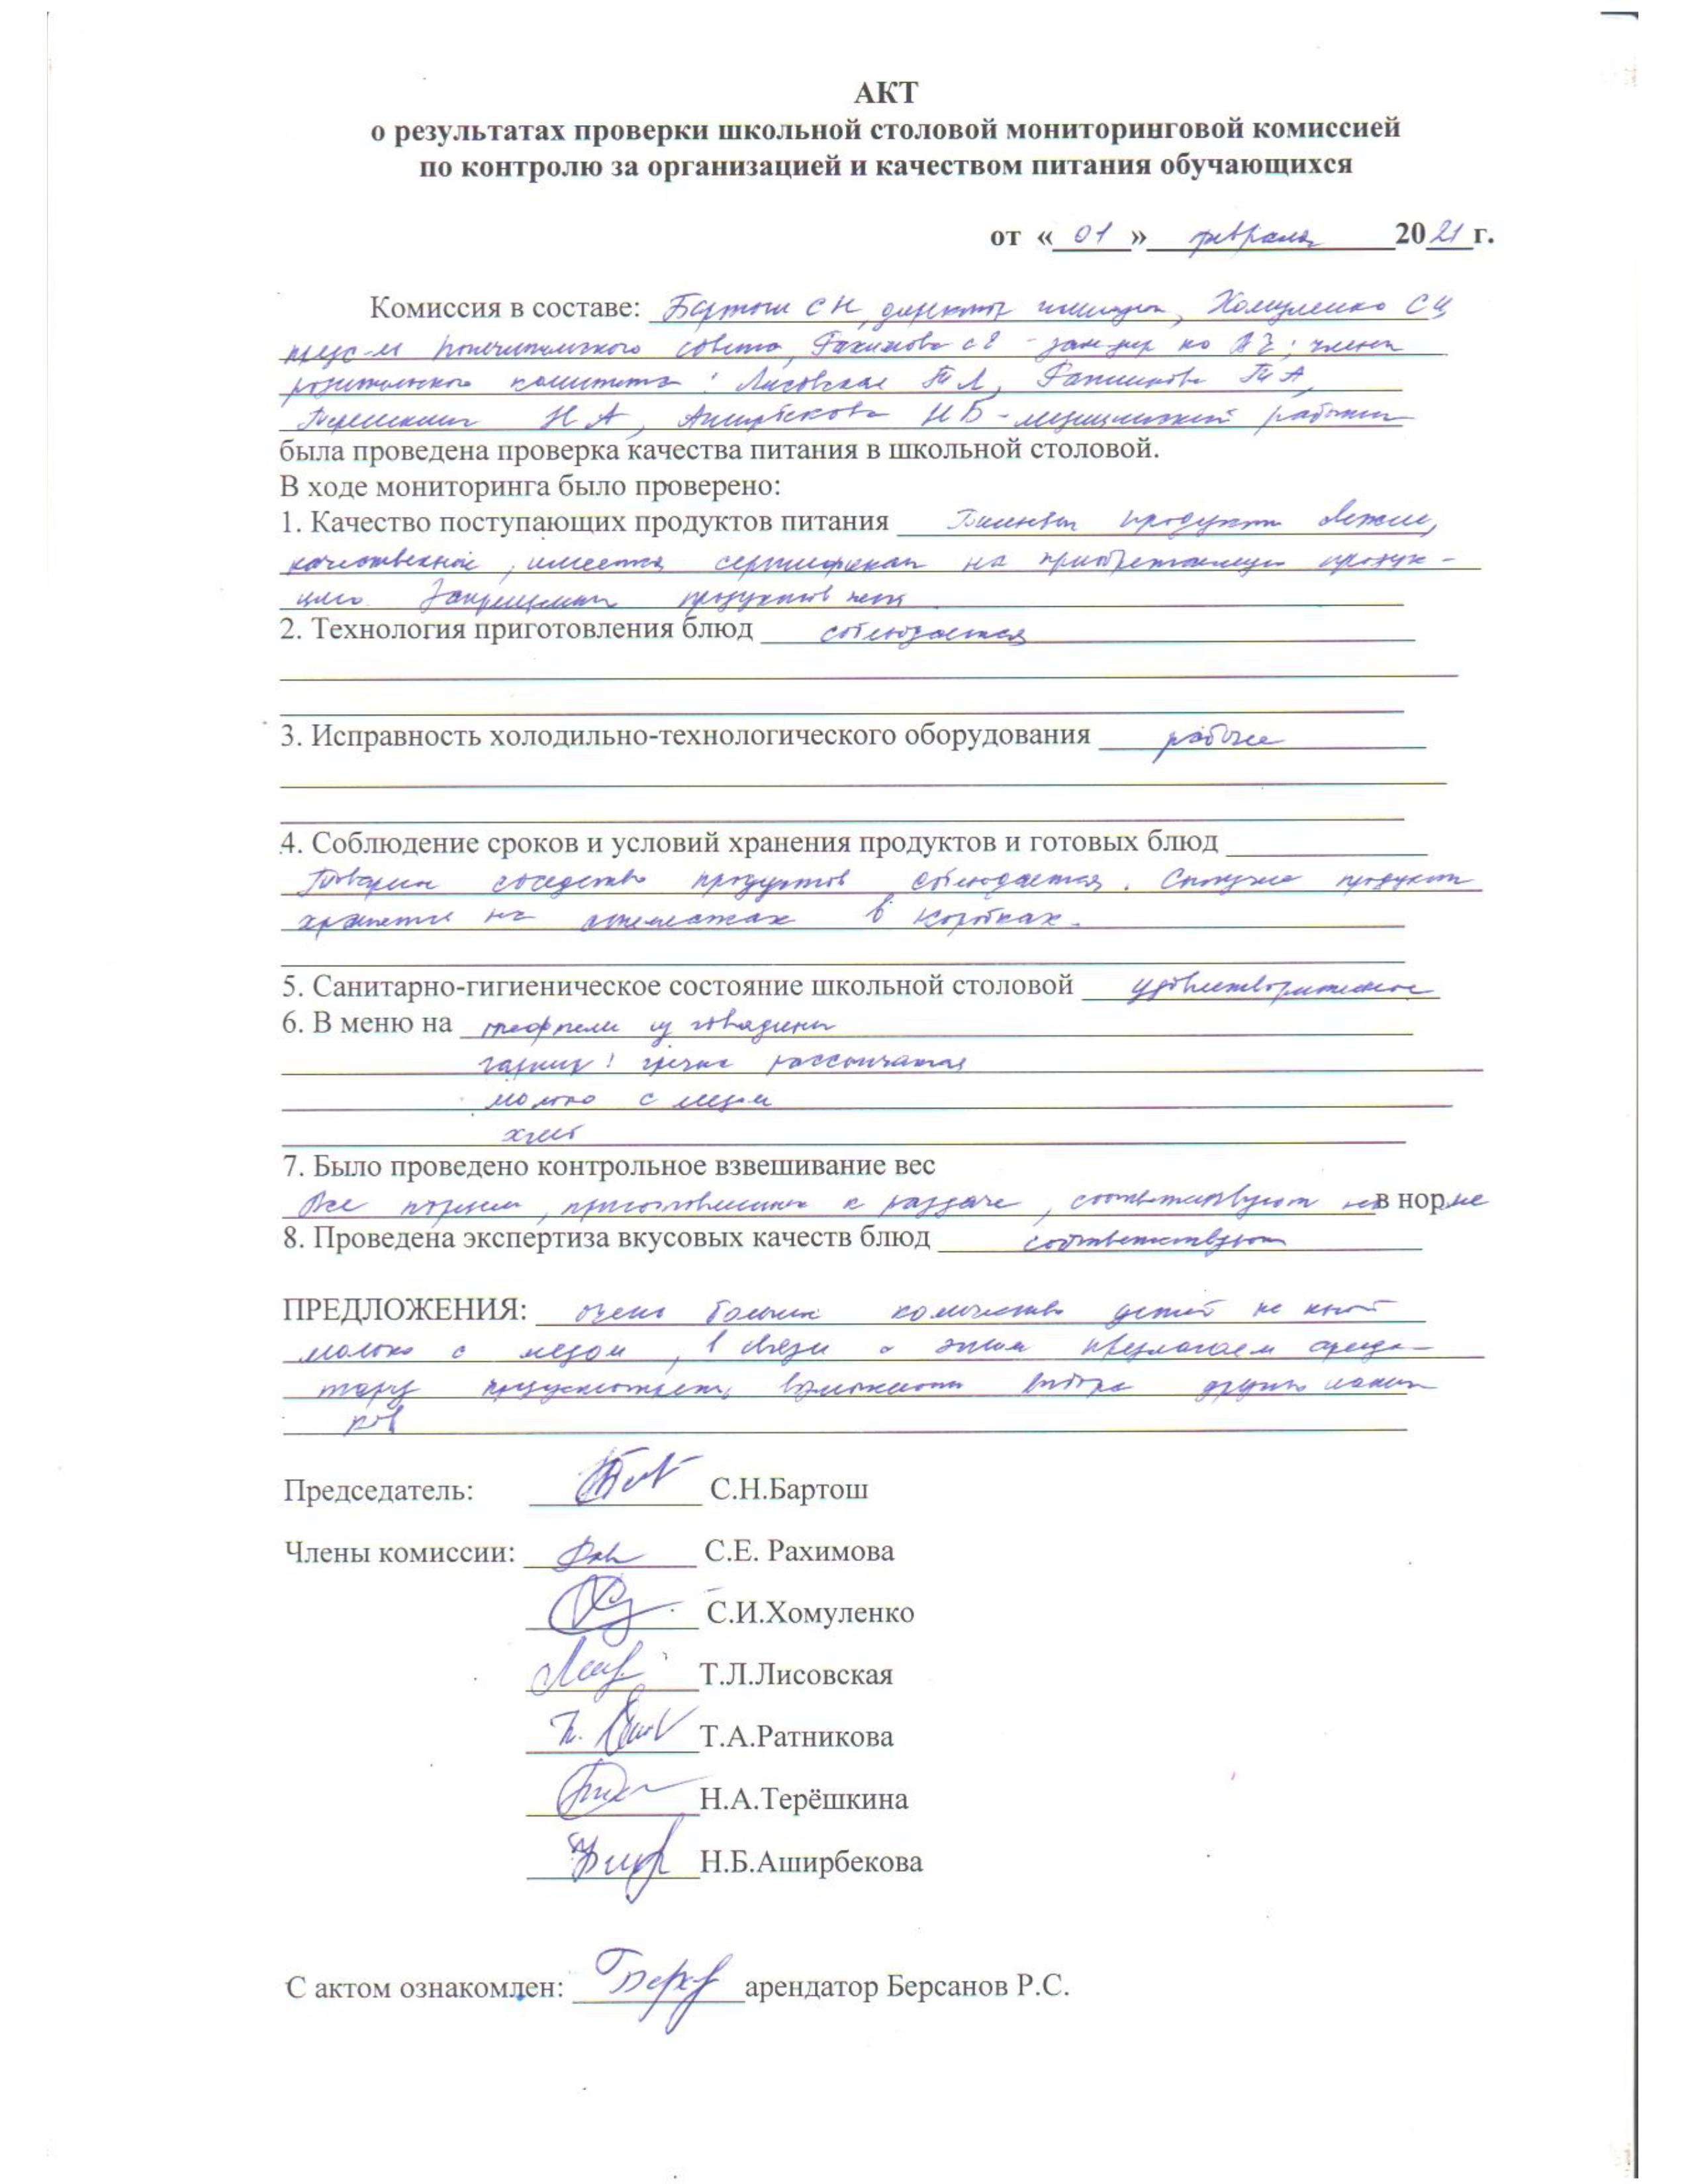 АКТ
о результатах проверки школьной столовой мониторинговой комиссией
по контролю за организацией и качеством питания обучающихся
от «01» февраля 2021 г.
Комиссия в составе: Бартош С Н, директор, Хомуленко С И
попечительского совета, Рахимова С Е - зам дир по ВР; члены
родительского комитета: Лисовская Т Л, Ратникова Т А,
Терешкина Н А, Аширбекова Н Б - медицинский работник
была проведена проверка качества питания в школьной столовой.
В ходе мониторинга было проверено:
1. Качество поступающих продуктов питания продукты свежие,
качественные, имеются сертификаты на приобретаемую продук-
цию. Запрещенных продуктов нет
2. Технология приготовления блюд соблюдается
3. Исправность холодильно-технологического оборудования рабочее
4. Соблюдение сроков и условий хранения продуктов и готовых блюд
Товарное соседство продуктов соблюдается. Сыпучие продукты
хранятся на стеллажах в коробках.
5. Санитарно-гигиеническое состояние школьной столовой удовлетворительное
6. В меню на тефтели из говядины
гарнир: гречка рассыпчатая
молоко с медом
хлеб
7. Было проведено контрольное взвешивание вес
Все порции, приготовленные к раздаче, соответствуют в норме
8. Проведена экспертиза вкусовых качеств блюд соответствуют
ПРЕДЛОЖЕНИЯ: очень большое количество детей не пьют
молоко с медом, в связи с этим предлагаем аренда-
тору предусмотреть возможность выбора других напит
ков
Председатель: С.Н.Бартош
Члены комиссии: С.Е. Рахимова
С.И.Хомуленко
Т.Л.Лисовская
Т.А.Ратникова
Н.А.Терёшкина
Н.Б.Аширбекова
С актом ознакомлен: арендатор Берсанов Р.С.